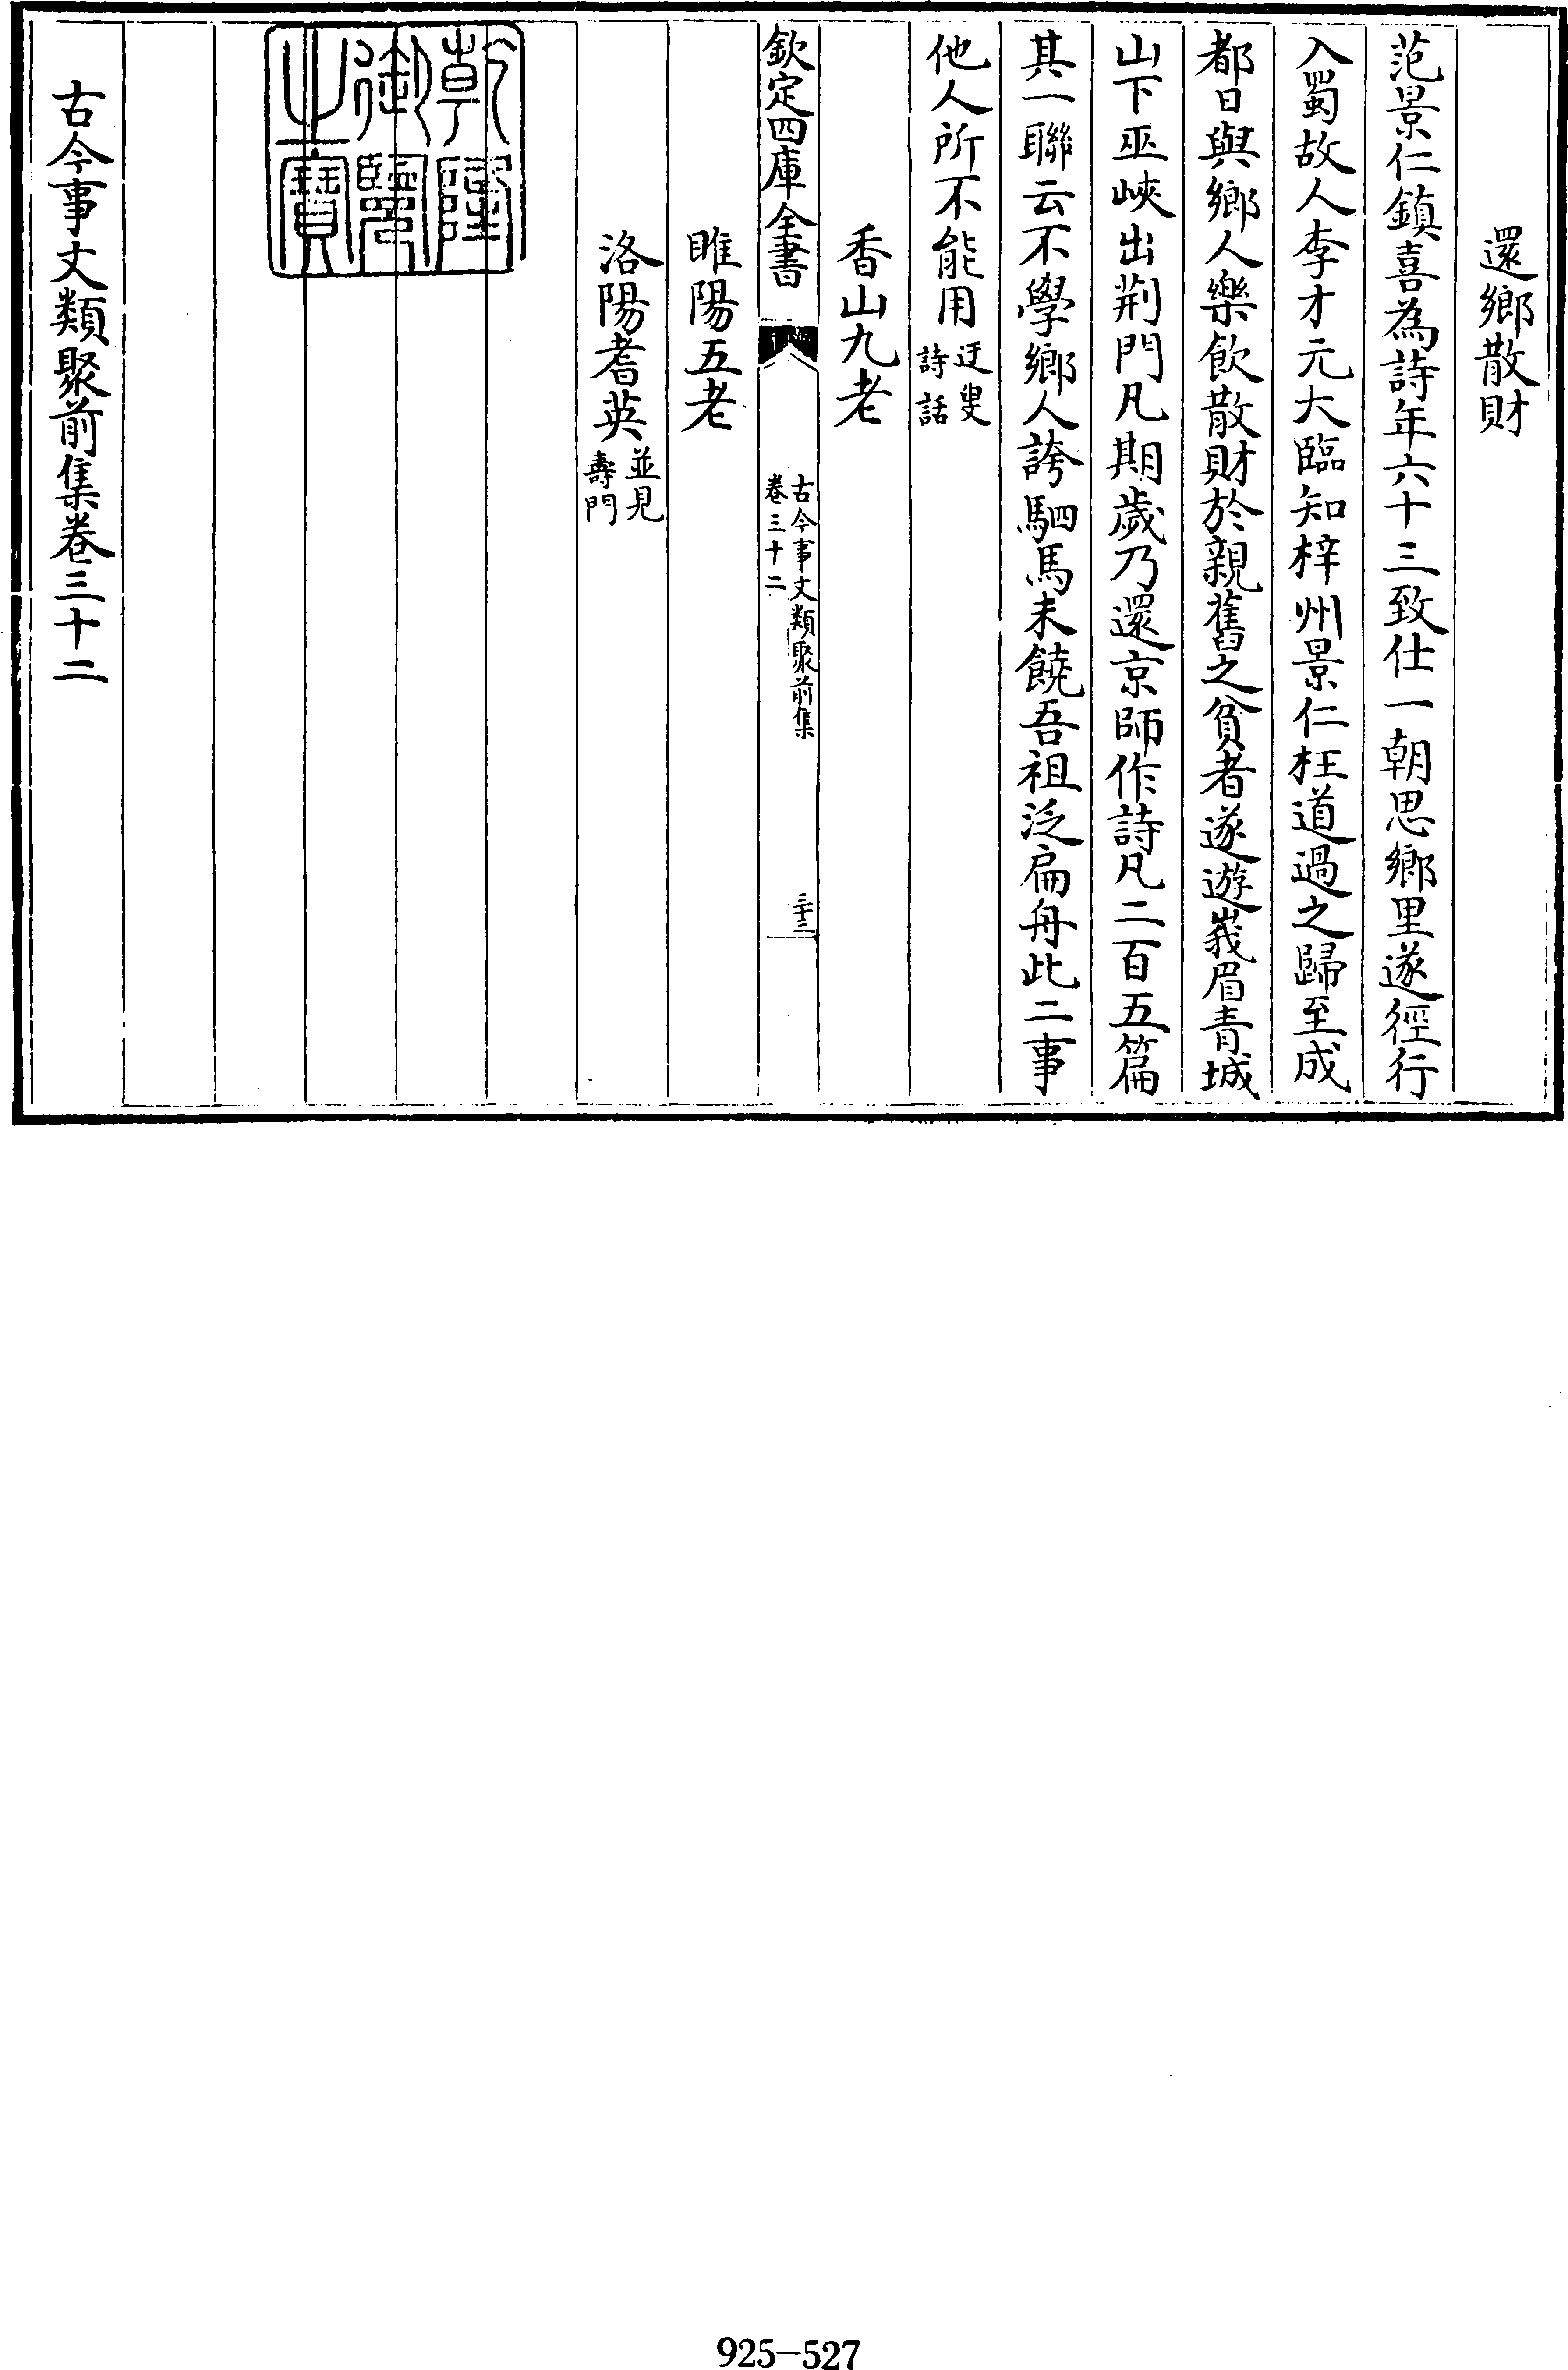 還鄉散財
范景仁鎮喜為詩年六十三致仕一朝思鄉里遂徑行
入蜀故人李才元大臨知梓州景仁枉道過之歸至成
都日與鄉人樂飲散財於親舊之貧者遂遊峩眉青城
山下巫峽出荆門凡期歲乃還京師作詩凡二百五篇
其一聯云不學鄉人誇駟馬未饒吾祖泛扁舟此二事
他人所不能用迂叟詩話
香山九老
欽定四庫全書
古今事文類聚前集
卷三十二
三十三
睢陽五老
洛陽耆英並見壽門
乾隆御覽之寶
古今事文類聚前集卷三十二
925-527